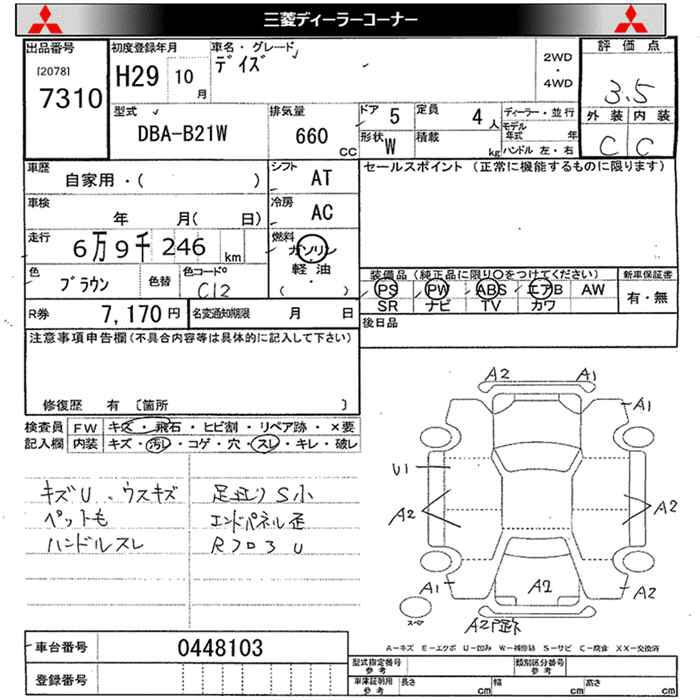 三菱ディーラーコーナー
出品番号
[2078]
7310
初度登録年月
H29 10 月
車名・グレード
デイズ
2WD
・
4WD
評価点
3.5
外装 内装
C C
型式
DBA-B21W
排気量
660 CC
ドア 5
定員 4 人
形状 W
積載 kg
ディーラー・並行
モデル年式 年
ハンドル 左・右
車歴
自家用・( )
シフト AT
冷房 AC
車検
年 月( 日)
走行
6万9千246 km
燃料
ガソリン
軽油
( ・ )
色
ブラウン
色替
色コードNo
C12
R券 7,170円
名変通知期限 月 日
セールスポイント (正常に機能するものに限ります)
装備品(純正品に限り○をつけてください)
PS PW ABS エアB AW
SR ナビ TV カワ
新車保証書
有・無
後日品
注意事項申告欄(不具合内容等は具体的に記入して下さい)
修復歴 有 [箇所 ]
検査員記入欄
FW キズ・飛石・ヒビ割・リペア跡・×要
内装 キズ・汚レ・コゲ・穴・スレ・キレ・破レ
キズU、ウスキズ
ペットも
ハンドルスレ
足立リS小
エンドパネル歪
Rフロ3 U
A2 A1
A1
U1
A2
A2
A1
A2
A2
スペア
A2凹跡
A-キズ E-エクボ U-凹み W-補修跡 S-サビ C-腐食 XX-交換済
車台番号 0448103
登録番号
型式指定番号 参考
類別区分番号 参考
車庫証明用 参考
長さ cm 幅 cm 高さ cm